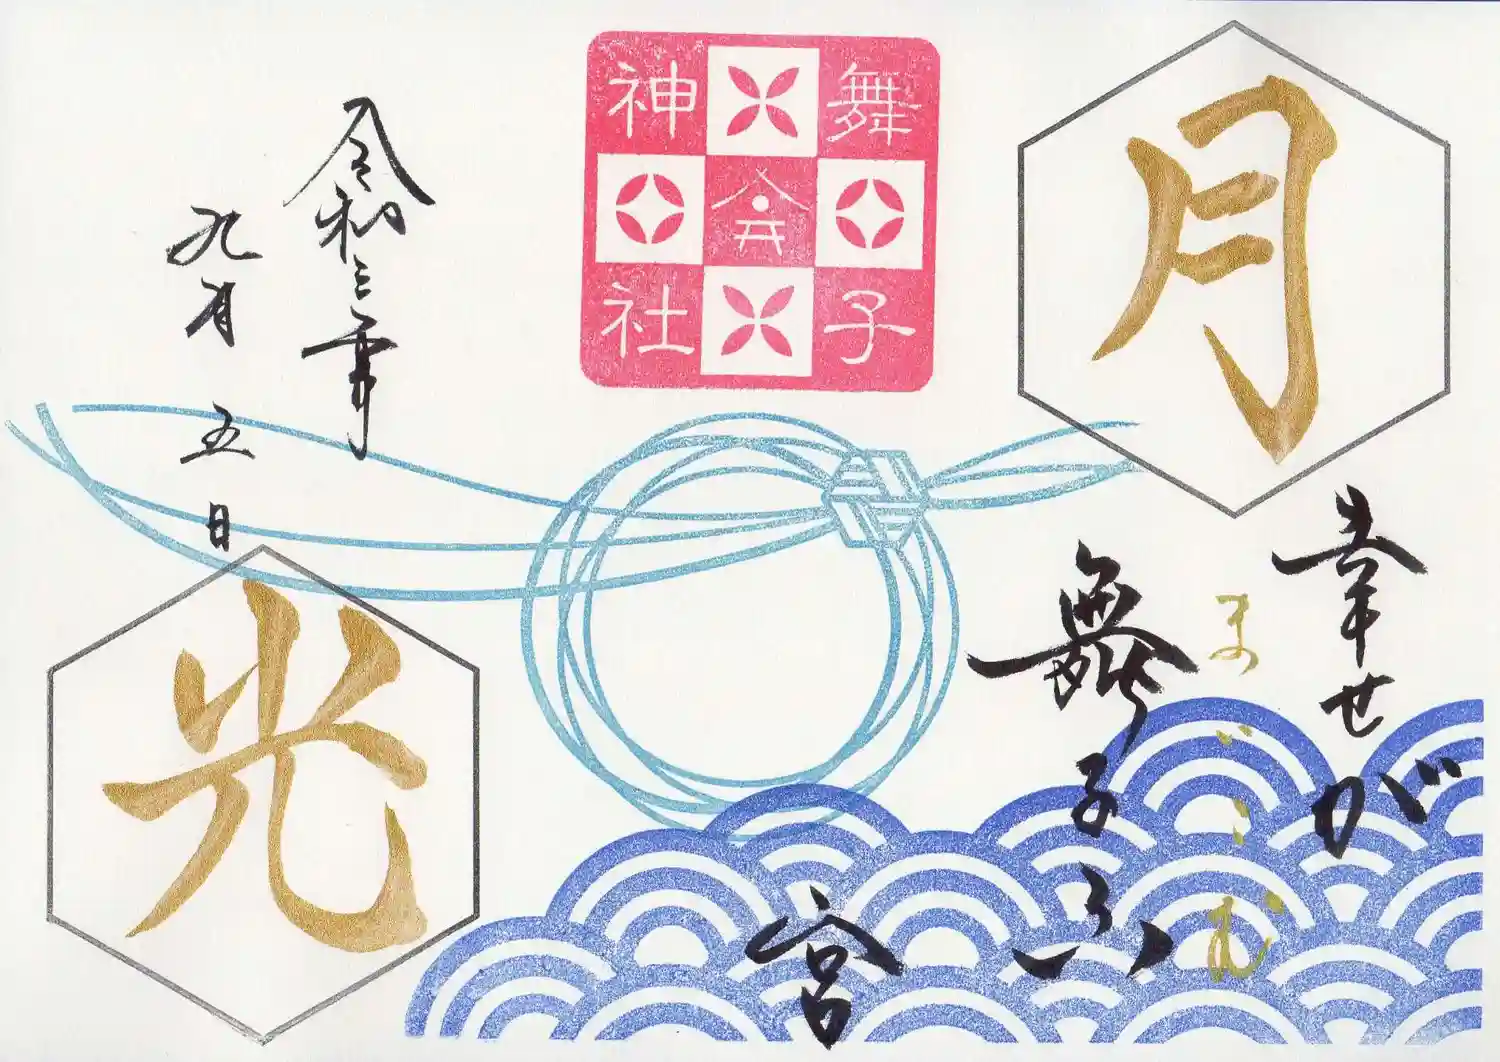 月
幸せが
まいこむ
舞子ふ
宮
舞子
神社
令和三年
九月五日
光